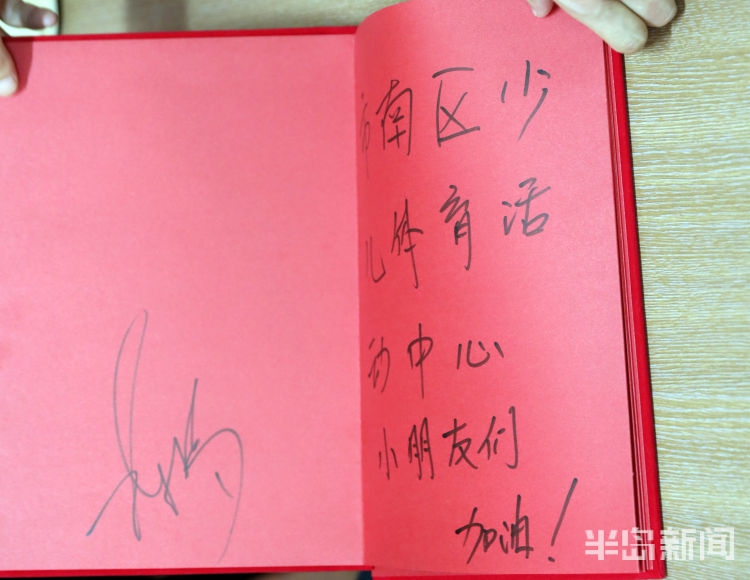 市南区少
儿体育活
动中心
小朋友们
加油！
半岛新闻